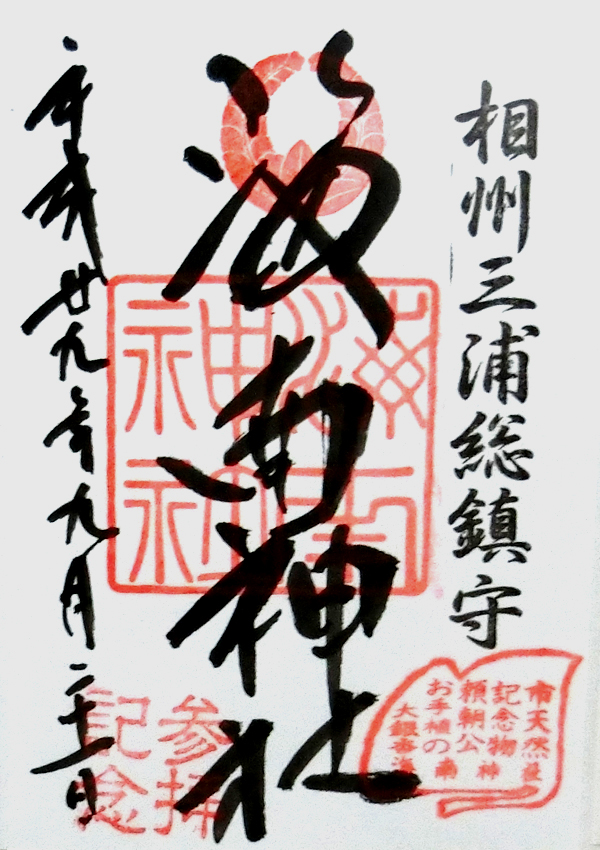 相州三浦総鎮守
海南神社
海南
神社
平成廿九年九月二十一日
参拝
記念
市天然
記念物
頼朝公
お手植の
大銀杏
海南神